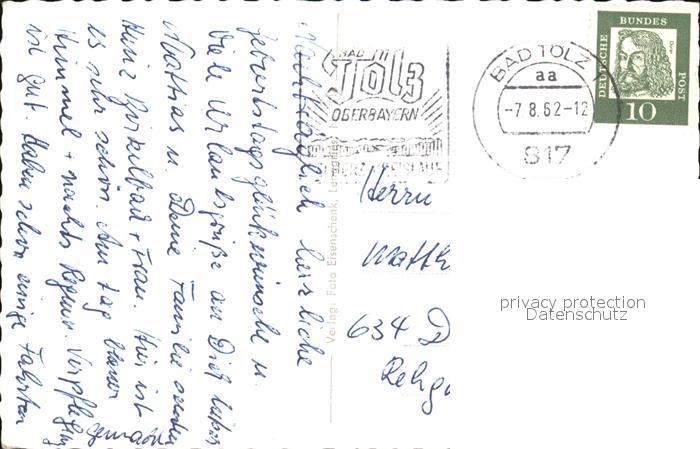 Nachträglich herzliche
Geburtstagsglückwünsche u.
viele Urlaubsgrüße an Dich lieber
Matthias u. Deine Familie senden
Heinz + Frau. Hier ist
es sehr schön. Am Tag blauer
Himmel + nachts Regen. Verpflegung
ist gut. Haben schon einige Fahrten
gemacht
Verlag: Foto Eisenschenk,
BAD
TÖLZ
OBERBAYERN
BAD TÖLZ
aa
-7.8.62-12
817
DEUTSCHE
BUNDES
POST
10
Herrn
Matth
634 D
Rehg
privacy protection
Datenschutz